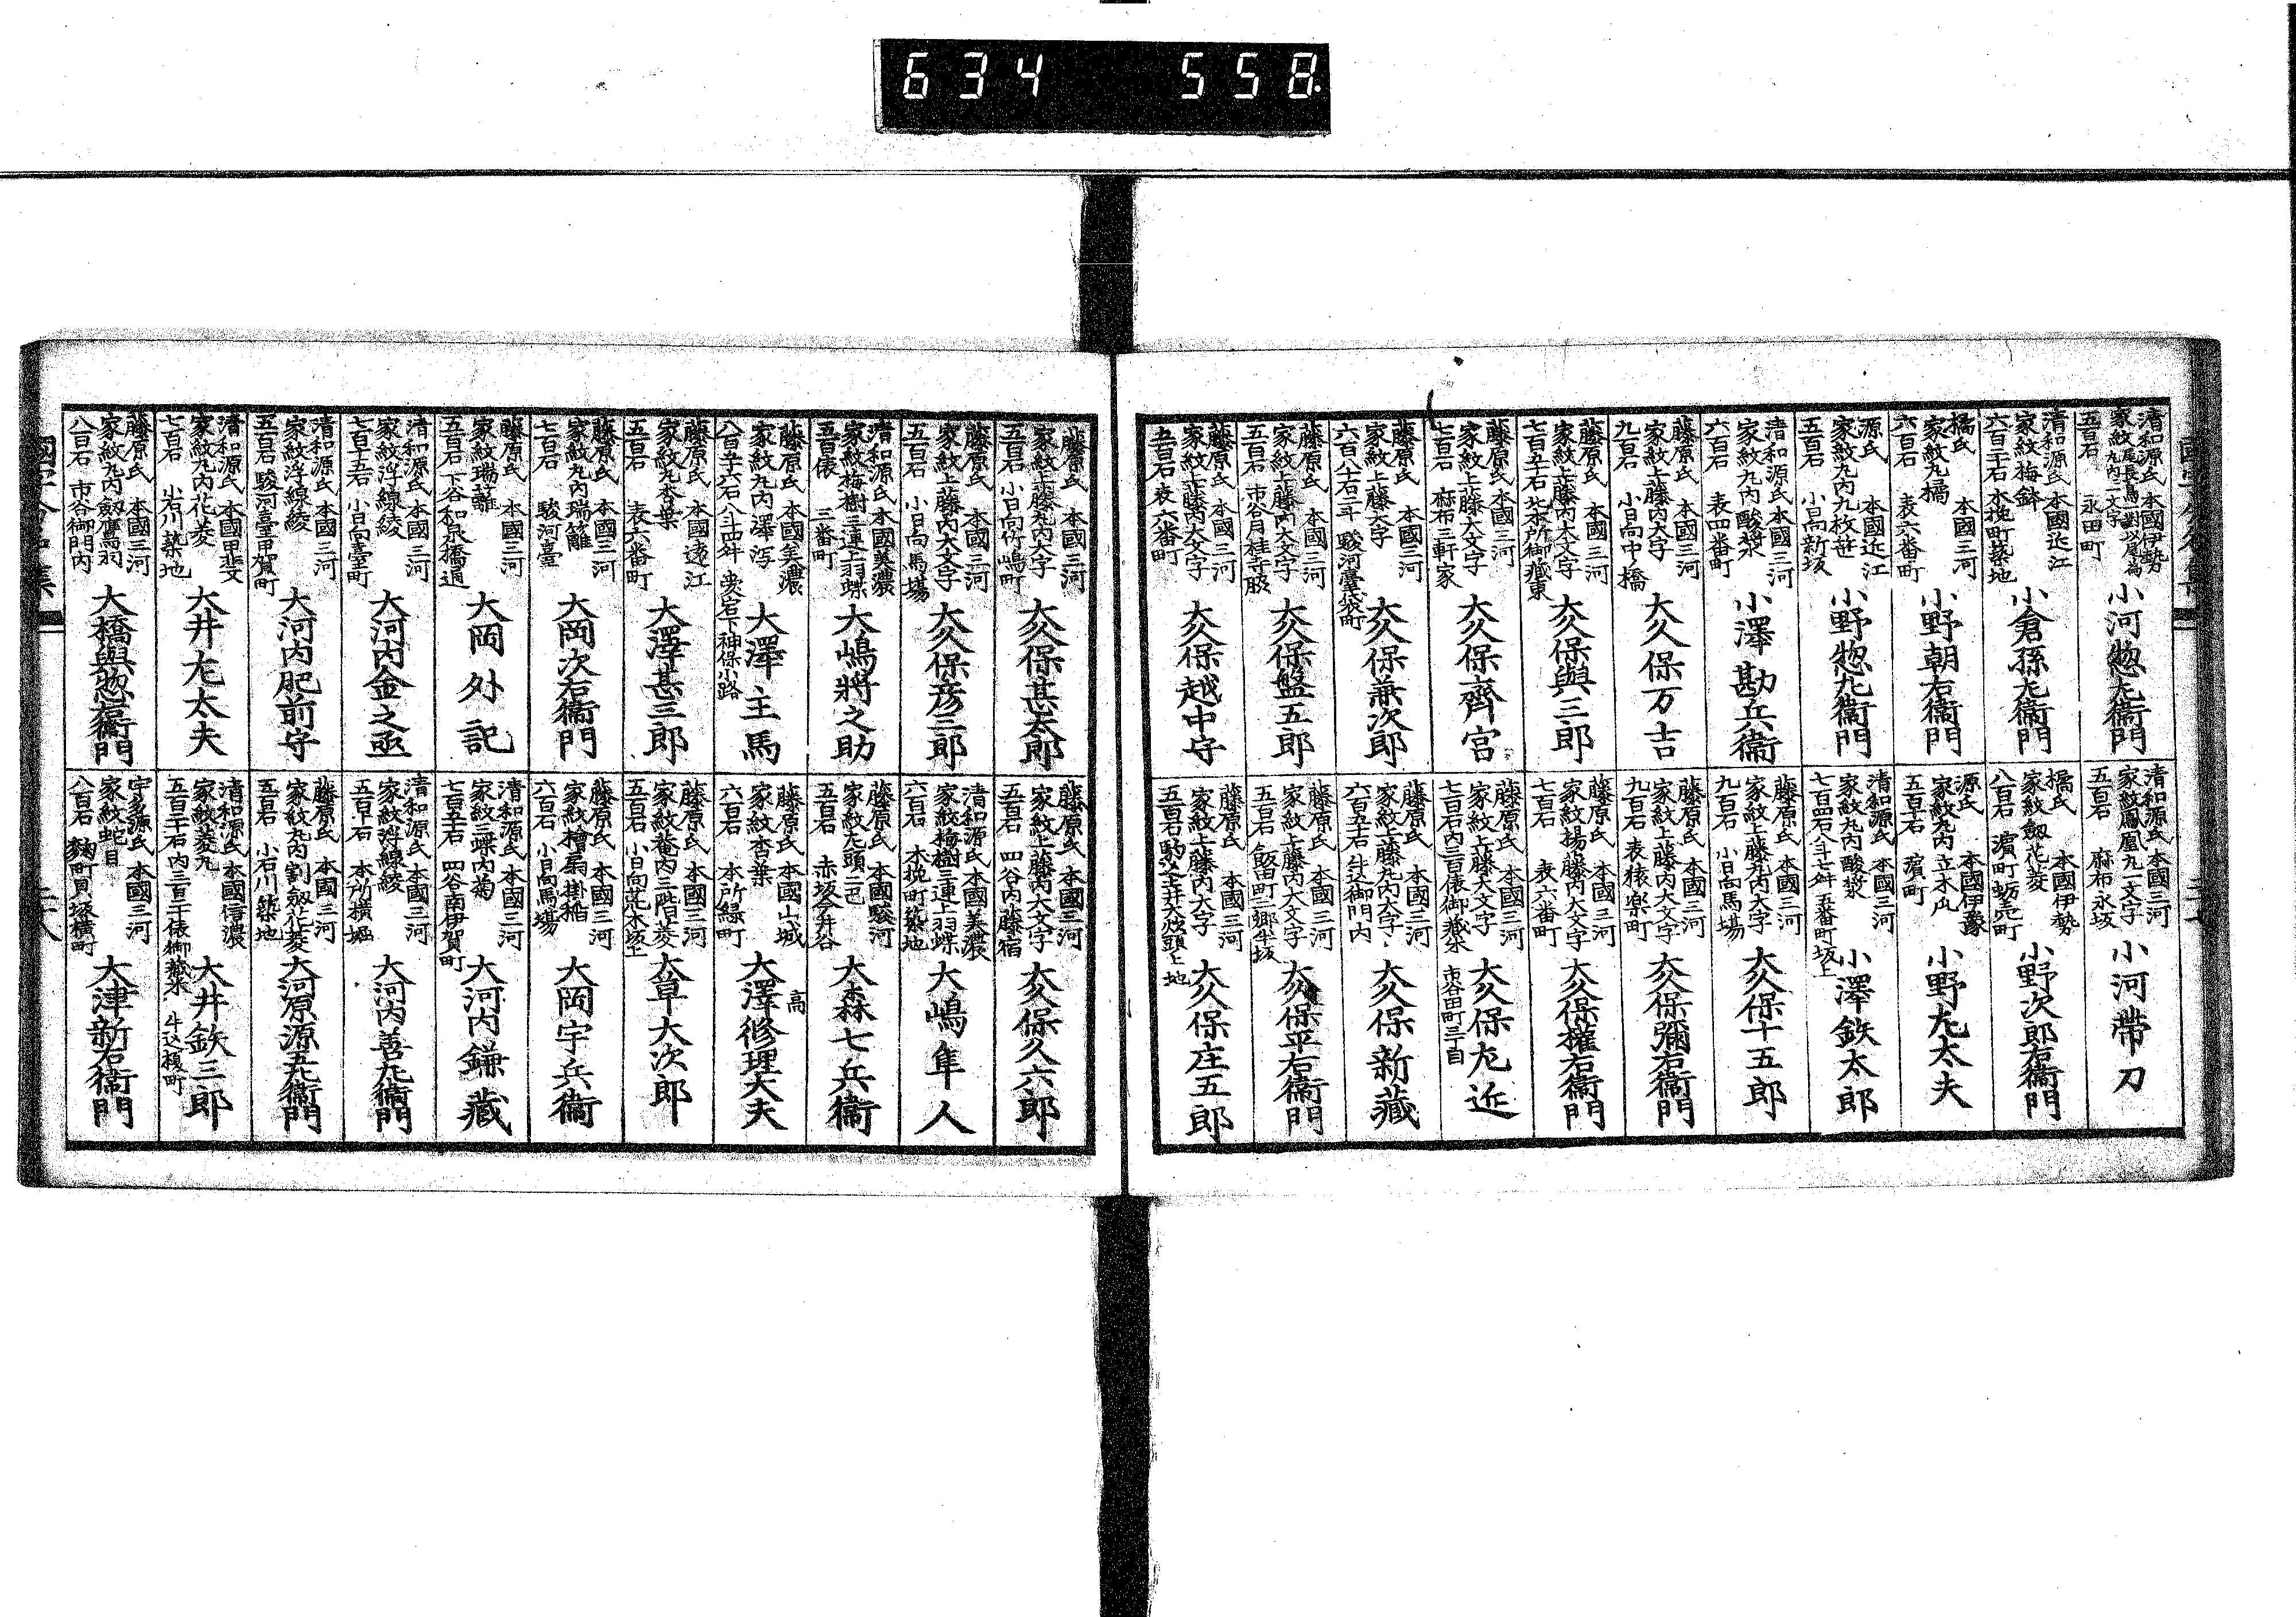 634 558
清和源氏 本國伊勢
家紋丸内三文字
五百石 永田町
小河惣左衞門
清和源氏 本國近江
家紋梅鉢
六百二十石 木挽町築地
小倉孫左衞門
橘氏 本國三河
家紋丸橘
六百石 表六番町
小野朝右衞門
源氏 本國近江
家紋丸内九枚笹
五百石 小日向新坂
小野惣左衞門
清和源氏 本國三河
家紋丸内酸漿
六百石 表四番町
小澤勘兵衞
藤原氏 本國三河
家紋上藤内大字
九百石 小日向中ノ橋
大久保万吉
藤原氏 本國三河
家紋上藤内大文字
七百五十石 北本所御藏東
大久保與三郎
藤原氏 本國三河
家紋上藤大文字
七百石 麻布三軒家
大久保齊宮
藤原氏 本國三河
家紋上藤大字
六百八十石三斗 駿河臺袋町
大久保兼次郎
藤原氏 本國三河
家紋上藤内大文字
五百石 市谷月桂寺脇
大久保盤五郎
藤原氏 本國三河
家紋上藤内大文字
五百石 表六番町
大久保越中守
清和源氏 本國三河
家紋鳳凰丸一文字
五百石 麻布永坂
小河帶刀
橘氏 本國伊勢
家紋劔花菱
八百石 濱町蛎売町
小野次郎右衞門
源氏 本國伊豫
家紋丸内立木瓜
五百十石 濵町
小野左太夫
清和源氏 本國三河
家紋丸内酸漿
七百四石八斗七舛 五番町坂上
小澤鉄太郎
藤原氏 本國三河
家紋上藤丸内大字
九百石 小日向馬場
大久保十五郎
藤原氏 本國三河
家紋上藤内大文字
九百石 表猿楽町
大久保彌右衞門
藤原氏 本國三河
家紋揚藤内大文字
七百石 表六番町
大久保權右衞門
藤原氏 本國三河
家紋上藤大文字
七百石内三百俵御藏米 市谷田町三丁目
大久保左近
藤原氏 本國三河
家紋上藤丸内大字
六百五十石 牛込御門内
大久保新藏
藤原氏 本國三河
家紋上藤内大文字
五百石 飯田町二郷半坂
大久保平右衞門
藤原氏 本國三河
家紋上藤内大字
五百石 駒込土井大炊頭上地
大久保庄五郎
藤原氏 本國三河
家紋上藤丸内大字
五百石 小日向竹嶋町
大久保甚太郎
藤原氏 本國三河
家紋上藤内大文字
五百石 小日向馬場
大久保彦三郎
清和源氏 本國美濃
家紋梅樹三連上羽蝶
五百俵 三番町
大嶋將之助
藤原氏 本國美濃
家紋丸内澤泻
八百五十六石八斗四舛 裏岩下神保小路
大澤主馬
藤原氏 本國遠江
家紋丸杏葉
五百石 表六番町
大澤甚三郎
藤原氏 本國三河
家紋丸内瑞籬
七百石 駿河臺
大岡次右衞門
藤原氏 本國三河
家紋瑞籬
五百石 下谷和泉橋通
大岡外記
清和源氏 本國三河
家紋浮線綾
七百十五石 小日向臺町
大河内金之亟
清和源氏 本國三河
家紋浮線綾
五百石 駿河臺甲賀町
大河内肥前守
清和源氏 本國甲斐
家紋丸内花菱
七百石 小石川築地
大井左太夫
藤原氏 本國三河
家紋丸内劔鷹羽
八百石 市谷御門内
大橋與惣右衞門
藤原氏 本國三河
家紋上藤内大文字
五百石 四谷内藤宿
大久保久六郎
清和源氏 本國美濃
家紋梅樹三連上羽蝶
六百石 木挽町築地
大嶋隼人
藤原氏 本國駿河
家紋左頭二巴
五百石 赤坂今井谷
大森七兵衞
藤原氏 本國山城
家紋杏葉
六百石 本所緑町
高
大澤修理大夫
藤原氏 本國三河
家紋菴内三階菱
五百石 小日向茫木坂上
大草大次郎
藤原氏 本國三河
家紋檜扇掛稲
六百石 小日向馬塲
大岡宇兵衞
清和源氏 本國三河
家紋三蝶内菊
七百五石 四谷南伊賀町
大河内鎌藏
清和源氏 本國三河
家紋浮線綾
五百十石 本所横堀
大河内善左衞門
藤原氏 本國三河
家紋丸内割劔花菱
五百石 小石川築地
大河原源五左衞門
清和源氏 本國信濃
家紋菱丸
五百二十石内三百二十俵御藏米 牛込榎町
大井鉄三郎
宇多源氏 本國三河
家紋蛇目
八百石 麹町貝塚横町
大津新右衞門